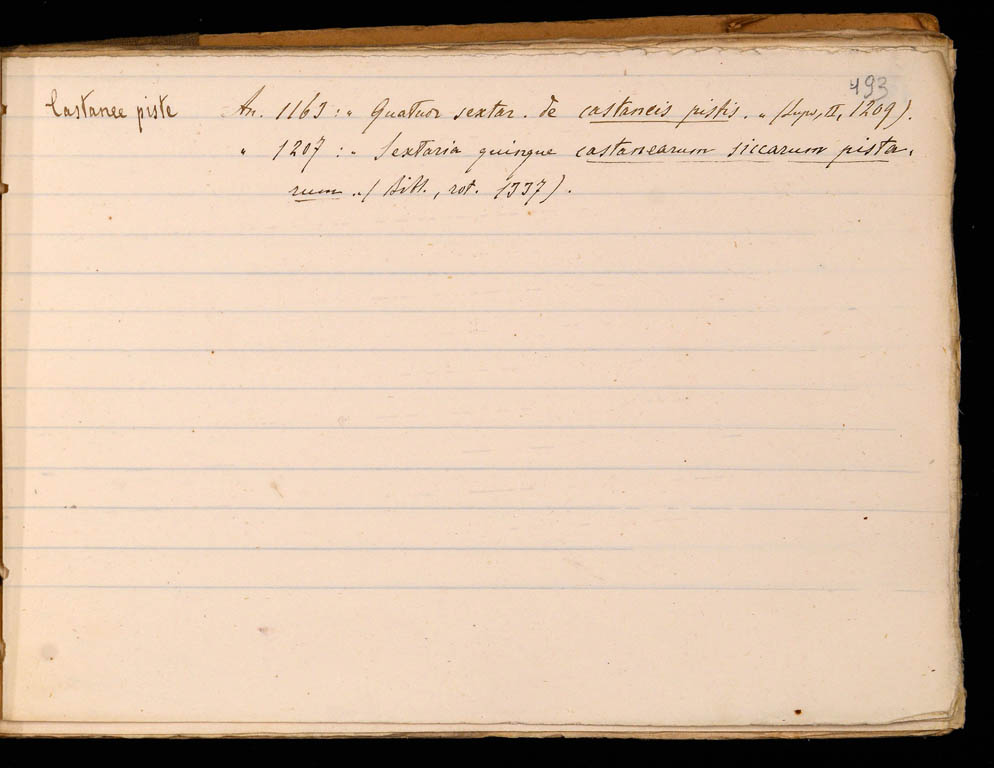 493
Castanee piste An. 1163 : " Quatuor sextar. de castaneis pistis. " (Lupo, II, 1209).
" 1207 : " Sextaria quinque castanearum siccarum pista-
rum ". (Bibl., rot. 1337).